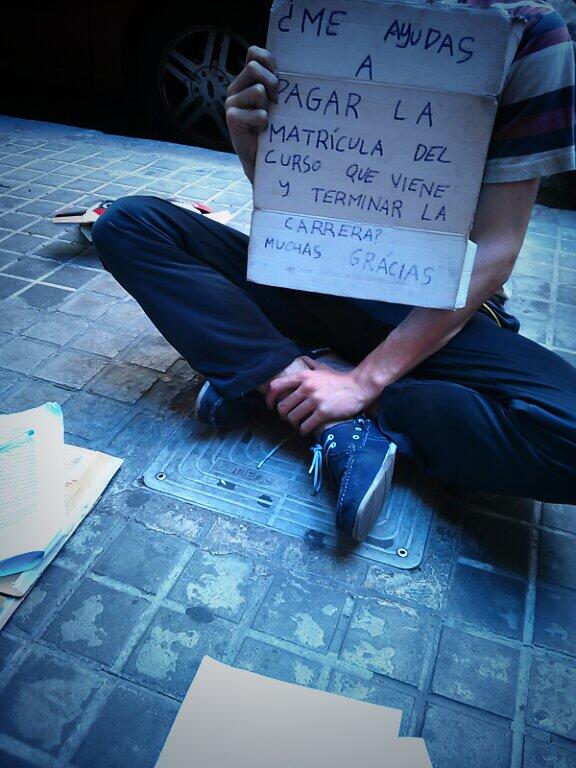 ¿ME AYUDAS
A
PAGAR LA
MATRÍCULA DEL
CURSO QUE VIENE
Y TERMINAR LA
CARRERA?
MUCHAS GRÁCIAS